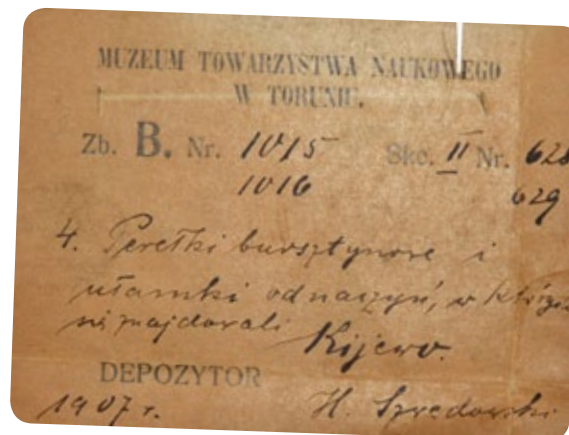 MUZEUM TOWARZYSTWA NAUKOWEGO
W TORUNIU.
Zb. B. Nr. 1015 Skc. II Nr. 628
1016 629
4. Perełki bursztynowe i
ułamki od naczyń, w których
się znajdowali Kijewo.
DEPOZYTOR
1907 r. H.